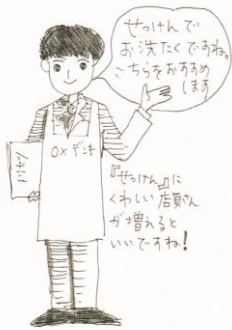 せっけんで
お洗たくですね。
こちらをおすすめ
します
○×デンキ
『せっけん』に
くわしい店員さん
が増えると
いいですね！